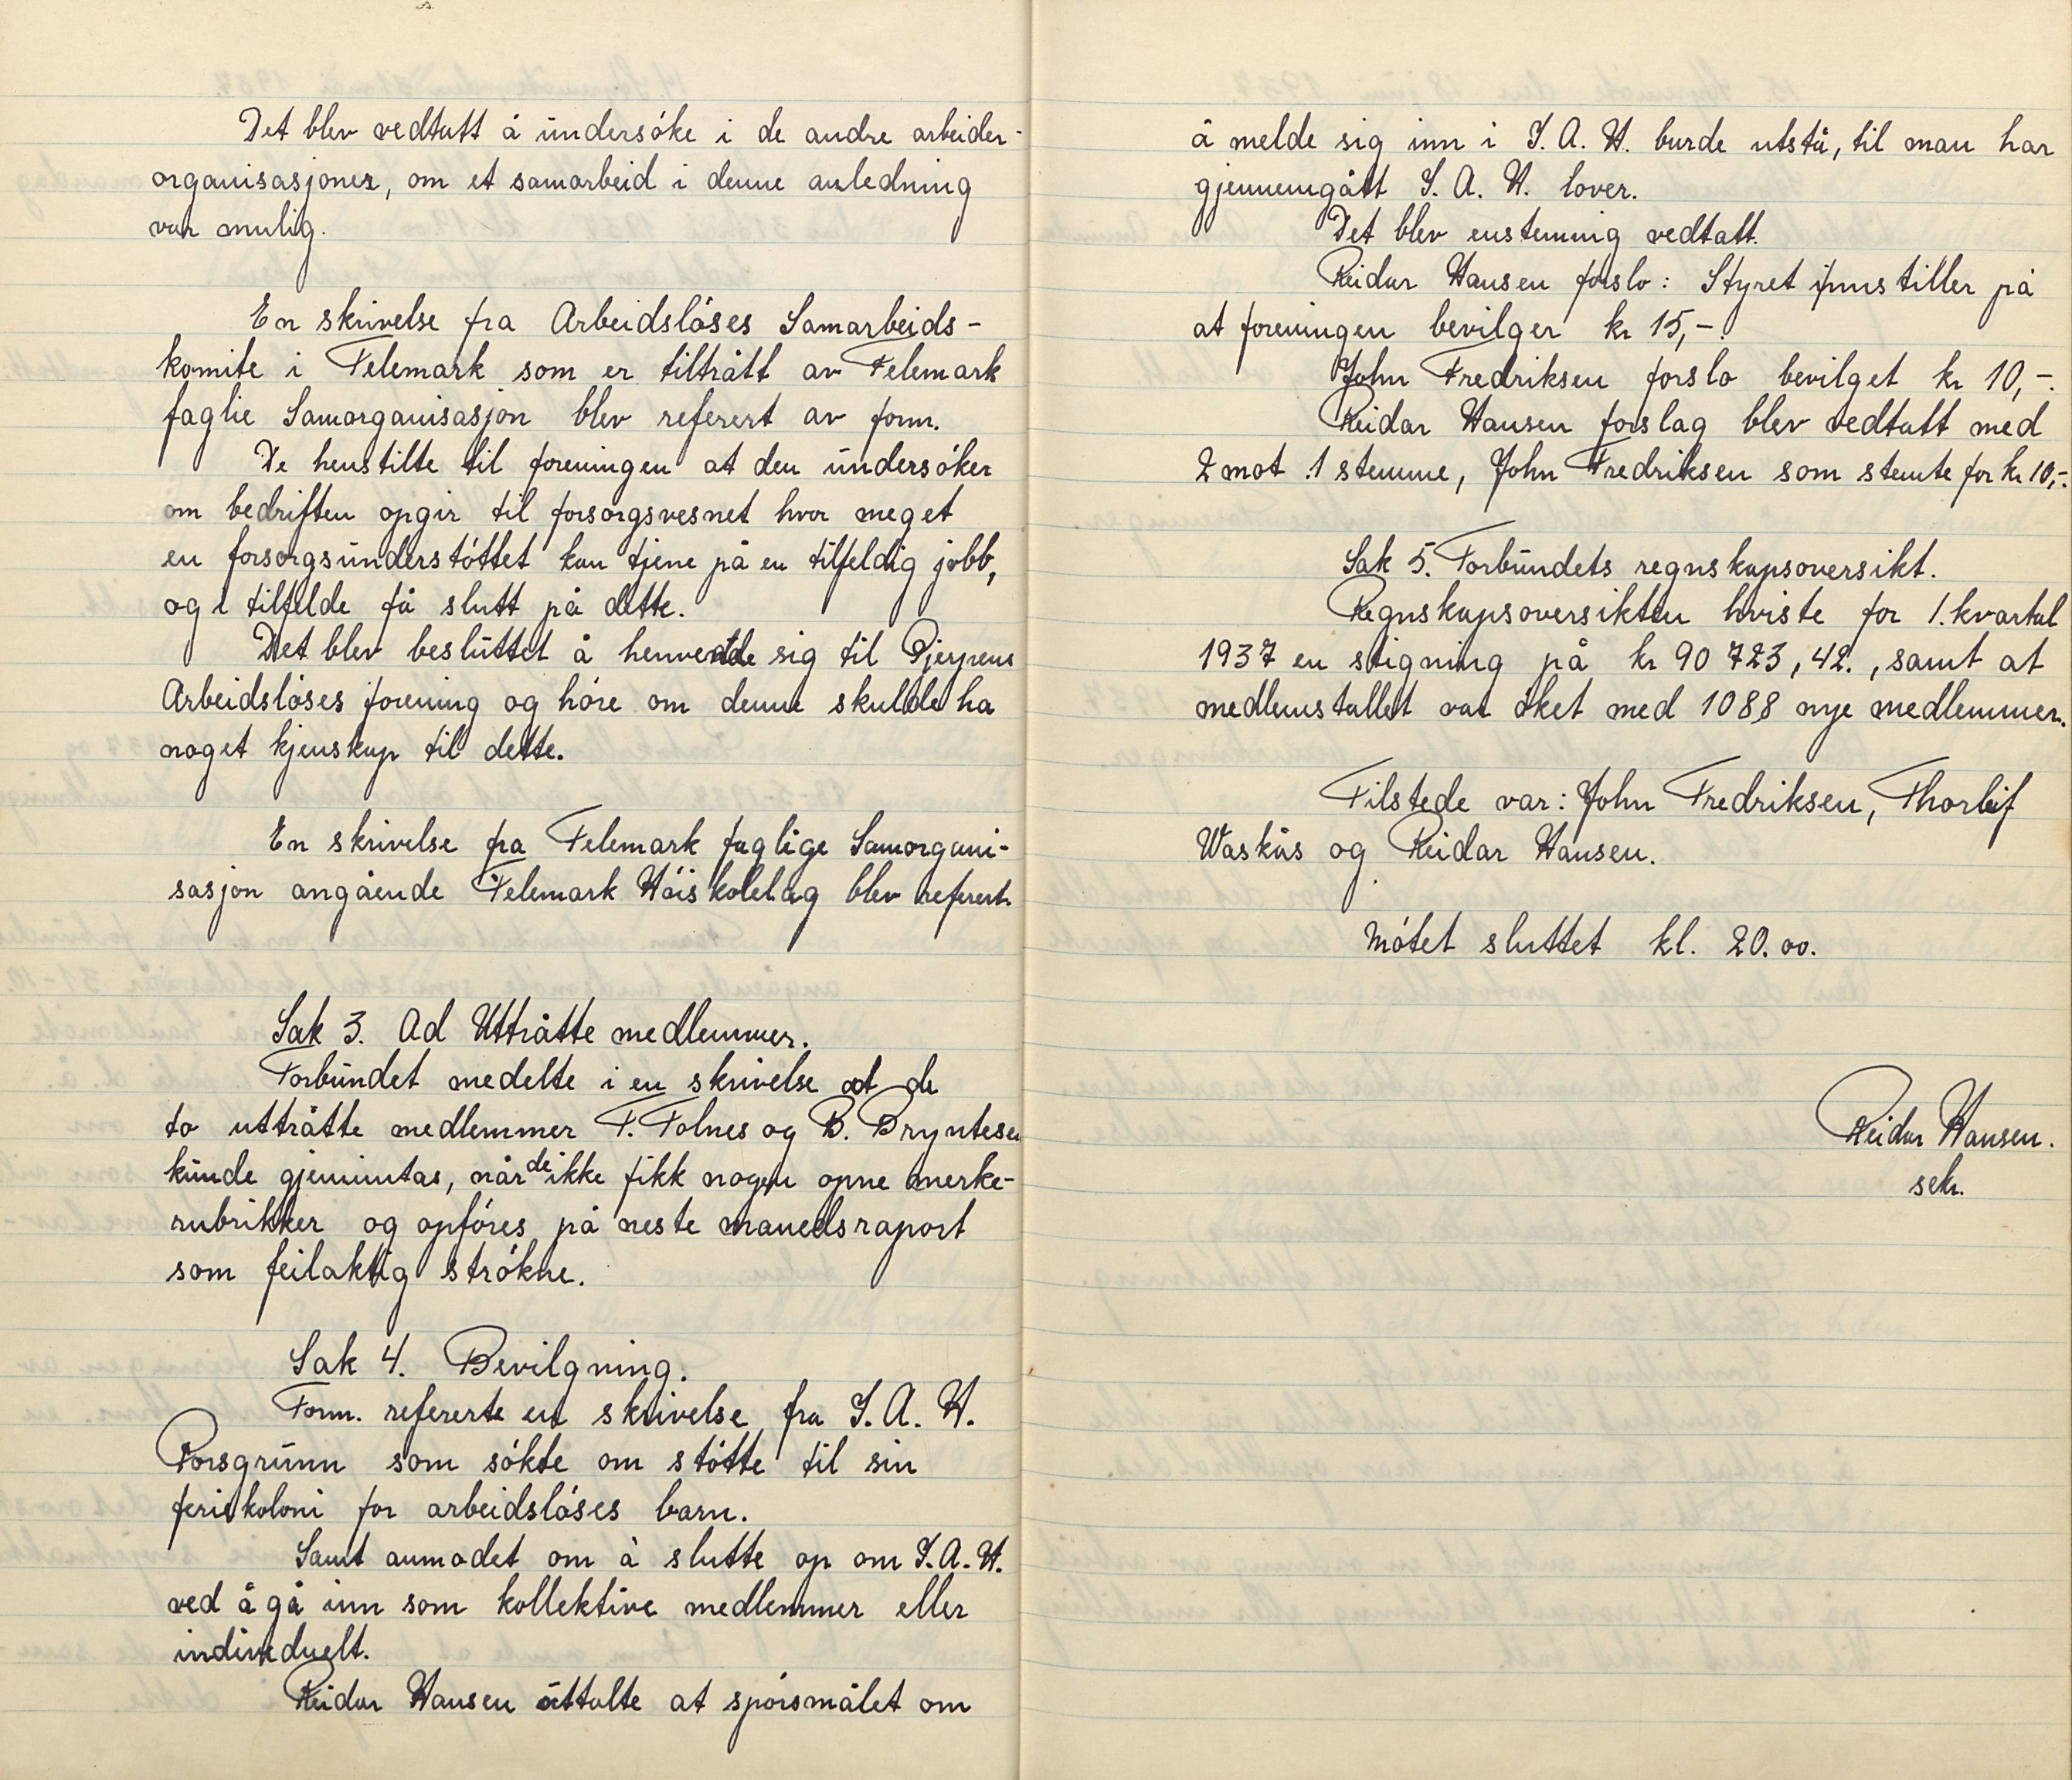 Det blev vedtatt å undersöke i de andre arbeider-
organisasjoner, om et samarbeid i denne anledning
var mulig.
En skrivelse fra Arbeidslöses Samarbeids-
komite i Telemark som er tiltrått av Telemark
faglie Samorganisasjon blev referert av form.
De henstilte til foreningen at den undersöker
om bedriften opgir til forsorgsvesnet hvor meget
en forsorgsunderstöttet kan tjene på en tilfeldig jobb,
og i tilfelde få slutt på dette.
Det blev besluttet å henvende sig til Gjerpens
Arbeidslöses forening og höre om denne skulde ha
noget kjenskap til dette.
En skrivelse fra Telemark faglige Samorgani-
sasjon angående Telemark Höiskolelag blev referert.
Sak 3. Ad Uttråtte medlemmer.
Forbundet medelte i en skrivelse at de
to uttråtte medlemmer T. Tolnes og B. Bryntesen
kunde gjeninntas, når de ikke fikk nogen opne merke-
rubrikker og opföres på neste manedsraport
som feilaktig strökne.
Sak 4. Bevilgning.
Form. refererte en skrivelse fra I. A. H.
Porsgrunn som sökte om stötte til sin
feriekoloni for arbeidslöses barn.
Samt anmodet om å slutte op om I.A.H.
ved å gå inn som kollektive medlemmer eller
individuelt.
Reidar Hansen uttalte at spörsmålet om
å melde sig inn i I. A. H. burde utstå, til man har
gjennemgått I. A. H. lover.
Det blev enstemmig vedtatt.
Reidar Hansen forslo: Styret innstiller på
at foreningen bevilger kr 15,-.
John Fredriksen forslo bevilget kr 10,-.
Reidar Hansen forslag blev vedtatt med
2 mot 1 stemme, John Fredriksen som stemte for kr 10,-.
Sak 5. Forbundets regnskapsoversikt.
Regnskapsoversikten hviste for 1. kvartal
1937 en stigning på kr 90 723,42., samt at
medlemstallet var öket med 1088 nye medlemmer.
Tilstede var: John Fredriksen, Thorleif
Waskås og Reidar Hansen.
Mötet sluttet kl. 20.00.
Reidar Hansen.
sekr.